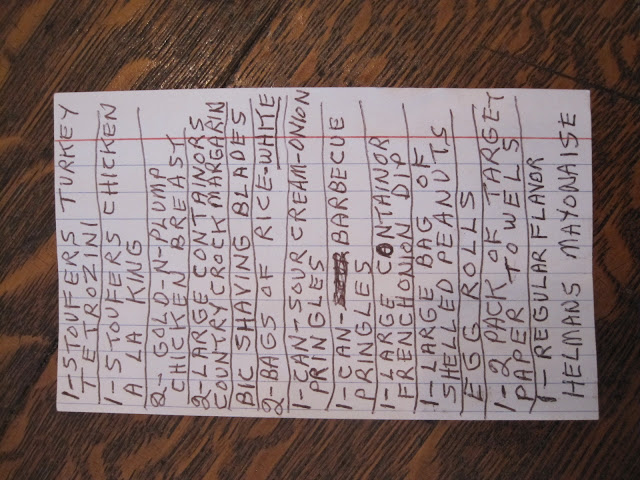 1-STOUFERS TURKEY
TETROZINI
1-STOUFERS CHICKEN
A LA KING
2-GOLD-N-PLUMP
CHICKEN BREAST
2-LARGE CONTAINORS
COUNTRY CROCK MARGARIN
BIC SHAVING BLADES
2-BAGS OF RICE-WHITE
1-CAN-SOUR CREAM-ONION
PRINGLES
1-CAN- BARBECUE
PRINGLES
1-LARGE CONTAINOR
FRENCH ONION DIP
1-LARGE BAG OF
SHELLED PEANUTS
EGG ROLLS
1-2 PACK OF TARGET
PAPER TOWELS
1-REGULAR FLAVOR
HELMANS MAYONAISE